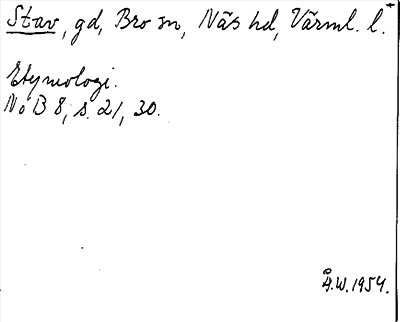 Stav, gd, Bro sn, Näs hd, Värml. l.
Etymologi.
NoB 8, s. 21, 30.
Å.W. 1954.